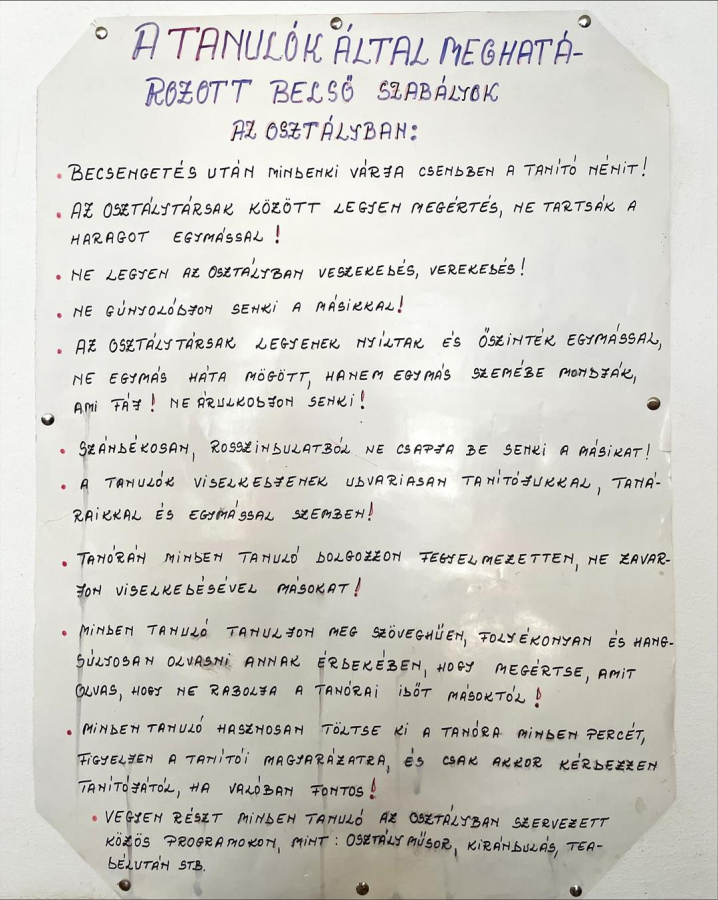 A TANULÓK ÁLTAL MEGHATÁ-
ROZOTT BELSŐ SZABÁLYOK
AZ OSZTÁLYBAN:
• BECSENGETÉS UTÁN MINDENKI VÁRJA CSENDBEN A TANÍTÓ NÉNIT!
• AZ OSZTÁLYTÁRSAK KÖZÖTT LEGYEN MEGÉRTÉS, NE TARTSÁK A
HARAGOT EGYMÁSSAL!
• NE LEGYEN AZ OSZTÁLYBAN VESZEKEDÉS, VEREKEDÉS!
• NE GÚNYOLÓDJON SENKI A MÁSIKKAL!
• AZ OSZTÁLYTÁRSAK LEGYENEK NYÍLTAK ÉS ŐSZINTÉK EGYMÁSSAL,
NE EGYMÁS HÁTA MÖGÖTT, HANEM EGYMÁS SZEMÉBE MONDJÁK,
AMI FÁJ! NE ÁRULKODJON SENKI!
• SZÁNDÉKOSAN, ROSSZINDULATBÓL NE CSAPJA BE SENKI A MÁSIKAT!
• A TANULÓK VISELKEDJENEK UDVARIASAN TANÍTÓJUKKAL, TANÁ-
RAIKKAL ÉS EGYMÁSSAL SZEMBEN!
• TANÓRÁN MINDEN TANULÓ DOLGOZZON FEGYELMEZETTEN, NE ZAVAR-
JON VISELKEDÉSÉVEL MÁSOKAT!
• MINDEN TANULÓ TANULJON MEG SZÖVEGHŰEN, FOLYÉKONYAN ÉS HANG-
SÚLYOSAN OLVASNI ANNAK ÉRDEKÉBEN, HOGY MEGÉRTSE, AMIT
OLVAS, HOGY NE RABOLJA A TANÓRAI IDŐT MÁSOKTÓL!
• MINDEN TANULÓ HASZNOSAN TÖLTSE KI A TANÓRA MINDEN PERCÉT,
FIGYELJEN A TANÍTÓI MAGYARÁZATRA, ÉS CSAK AKKOR KÉRDEZZEN
TANÍTÓJÁTÓL, HA VALÓBAN FONTOS!
• VEGYEN RÉSZT MINDEN TANULÓ AZ OSZTÁLYBAN SZERVEZETT
KÖZÖS PROGRAMOKON, MINT: OSZTÁLYMŰSOR, KIRÁNDULÁS, TEA-
DÉLUTÁN STB.